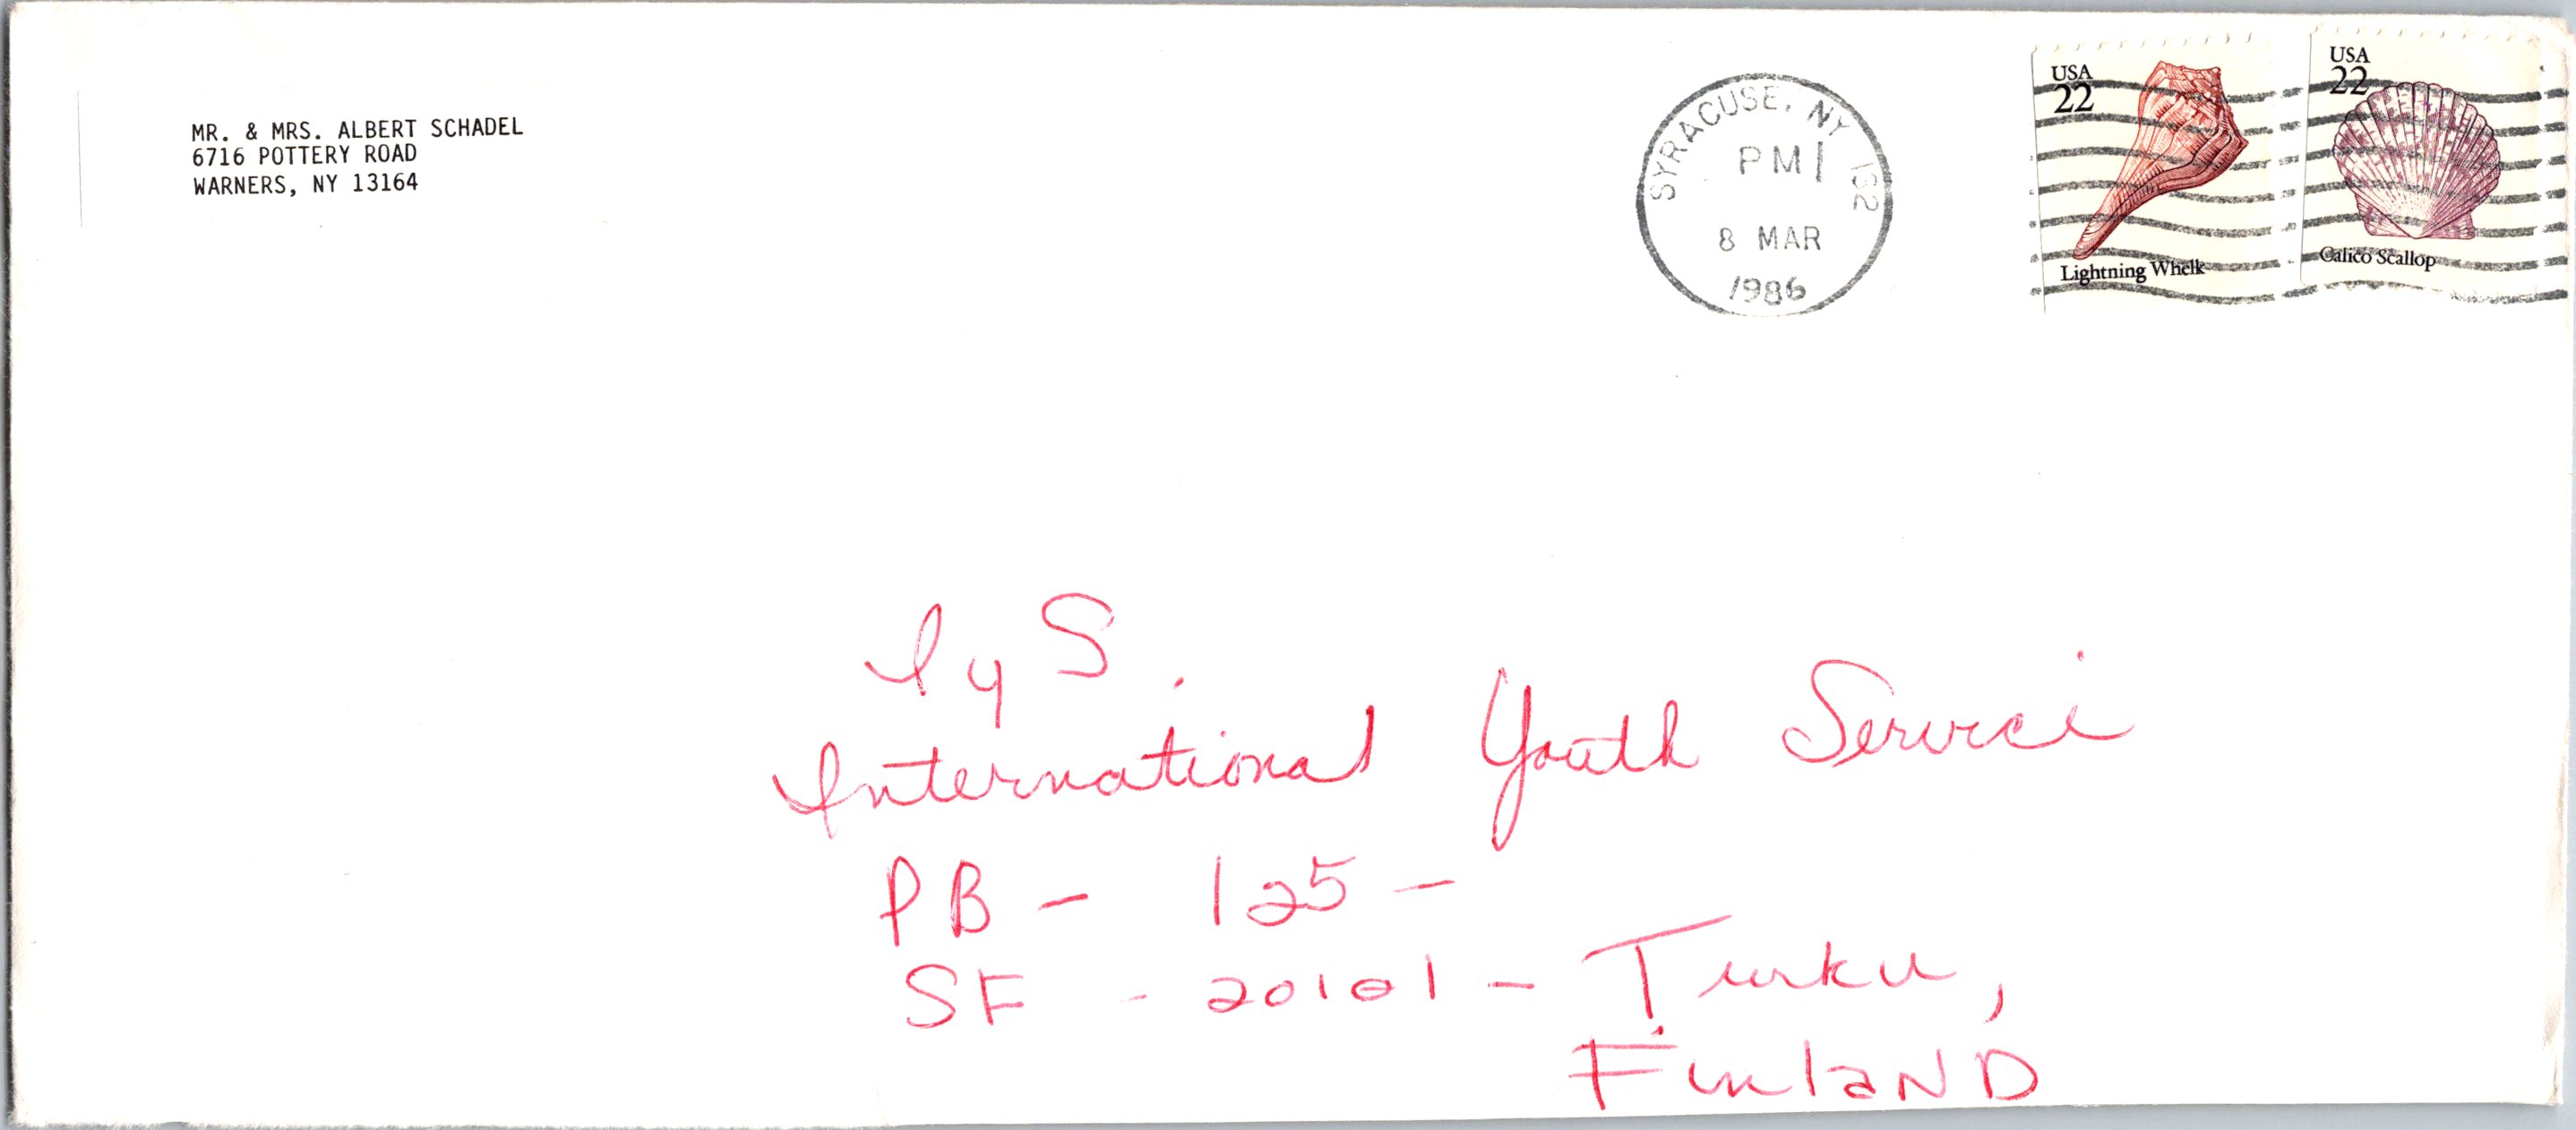 MR. & MRS. ALBERT SCHADEL
6716 POTTERY ROAD
WARNERS, NY 13164
SYRACUSE, NY 132
PM
8 MAR
1986
USA
22
Lightning Whelk
USA
22
Calico Scallop
IyS
International Youth Service
PB - 125 -
SF - 20101 - Turku,
FinlaND